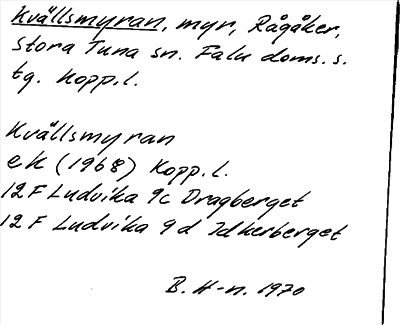 Kvällsmyran, myr, Rågåker,
Stora Tuna sn. Falu doms. s.
tg. Kopp.l.
Kvällsmyran
ek (1968) Kopp.l.
12 F Ludvika 9c Dragberget
12 F Ludvika 9d Idkerberget
B. H-n. 1970